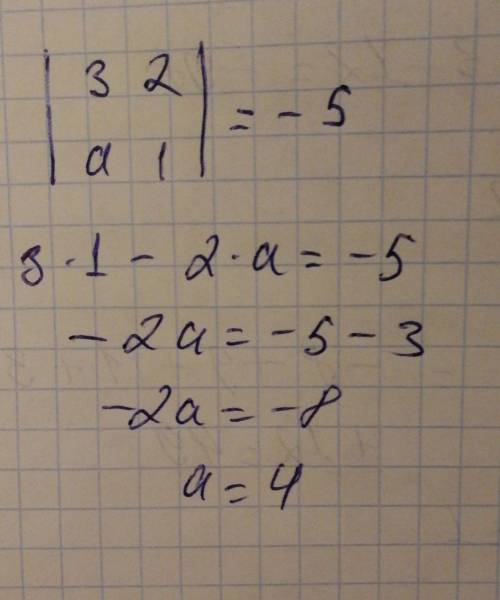 | 3 2 |
| a 1 | = - 5
3 · 1 - 2 · a = -5
- 2a = -5 - 3
-2a = -8
a = 4